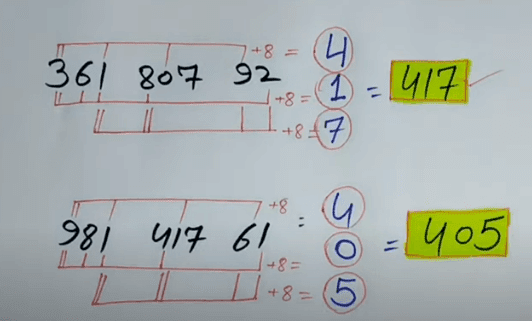 +8 = 4
361 807 92 +8 = 1 = 417
+8 = 7
+8 : 4
981 417 61 +8 = 0 = 405
+8 = 5